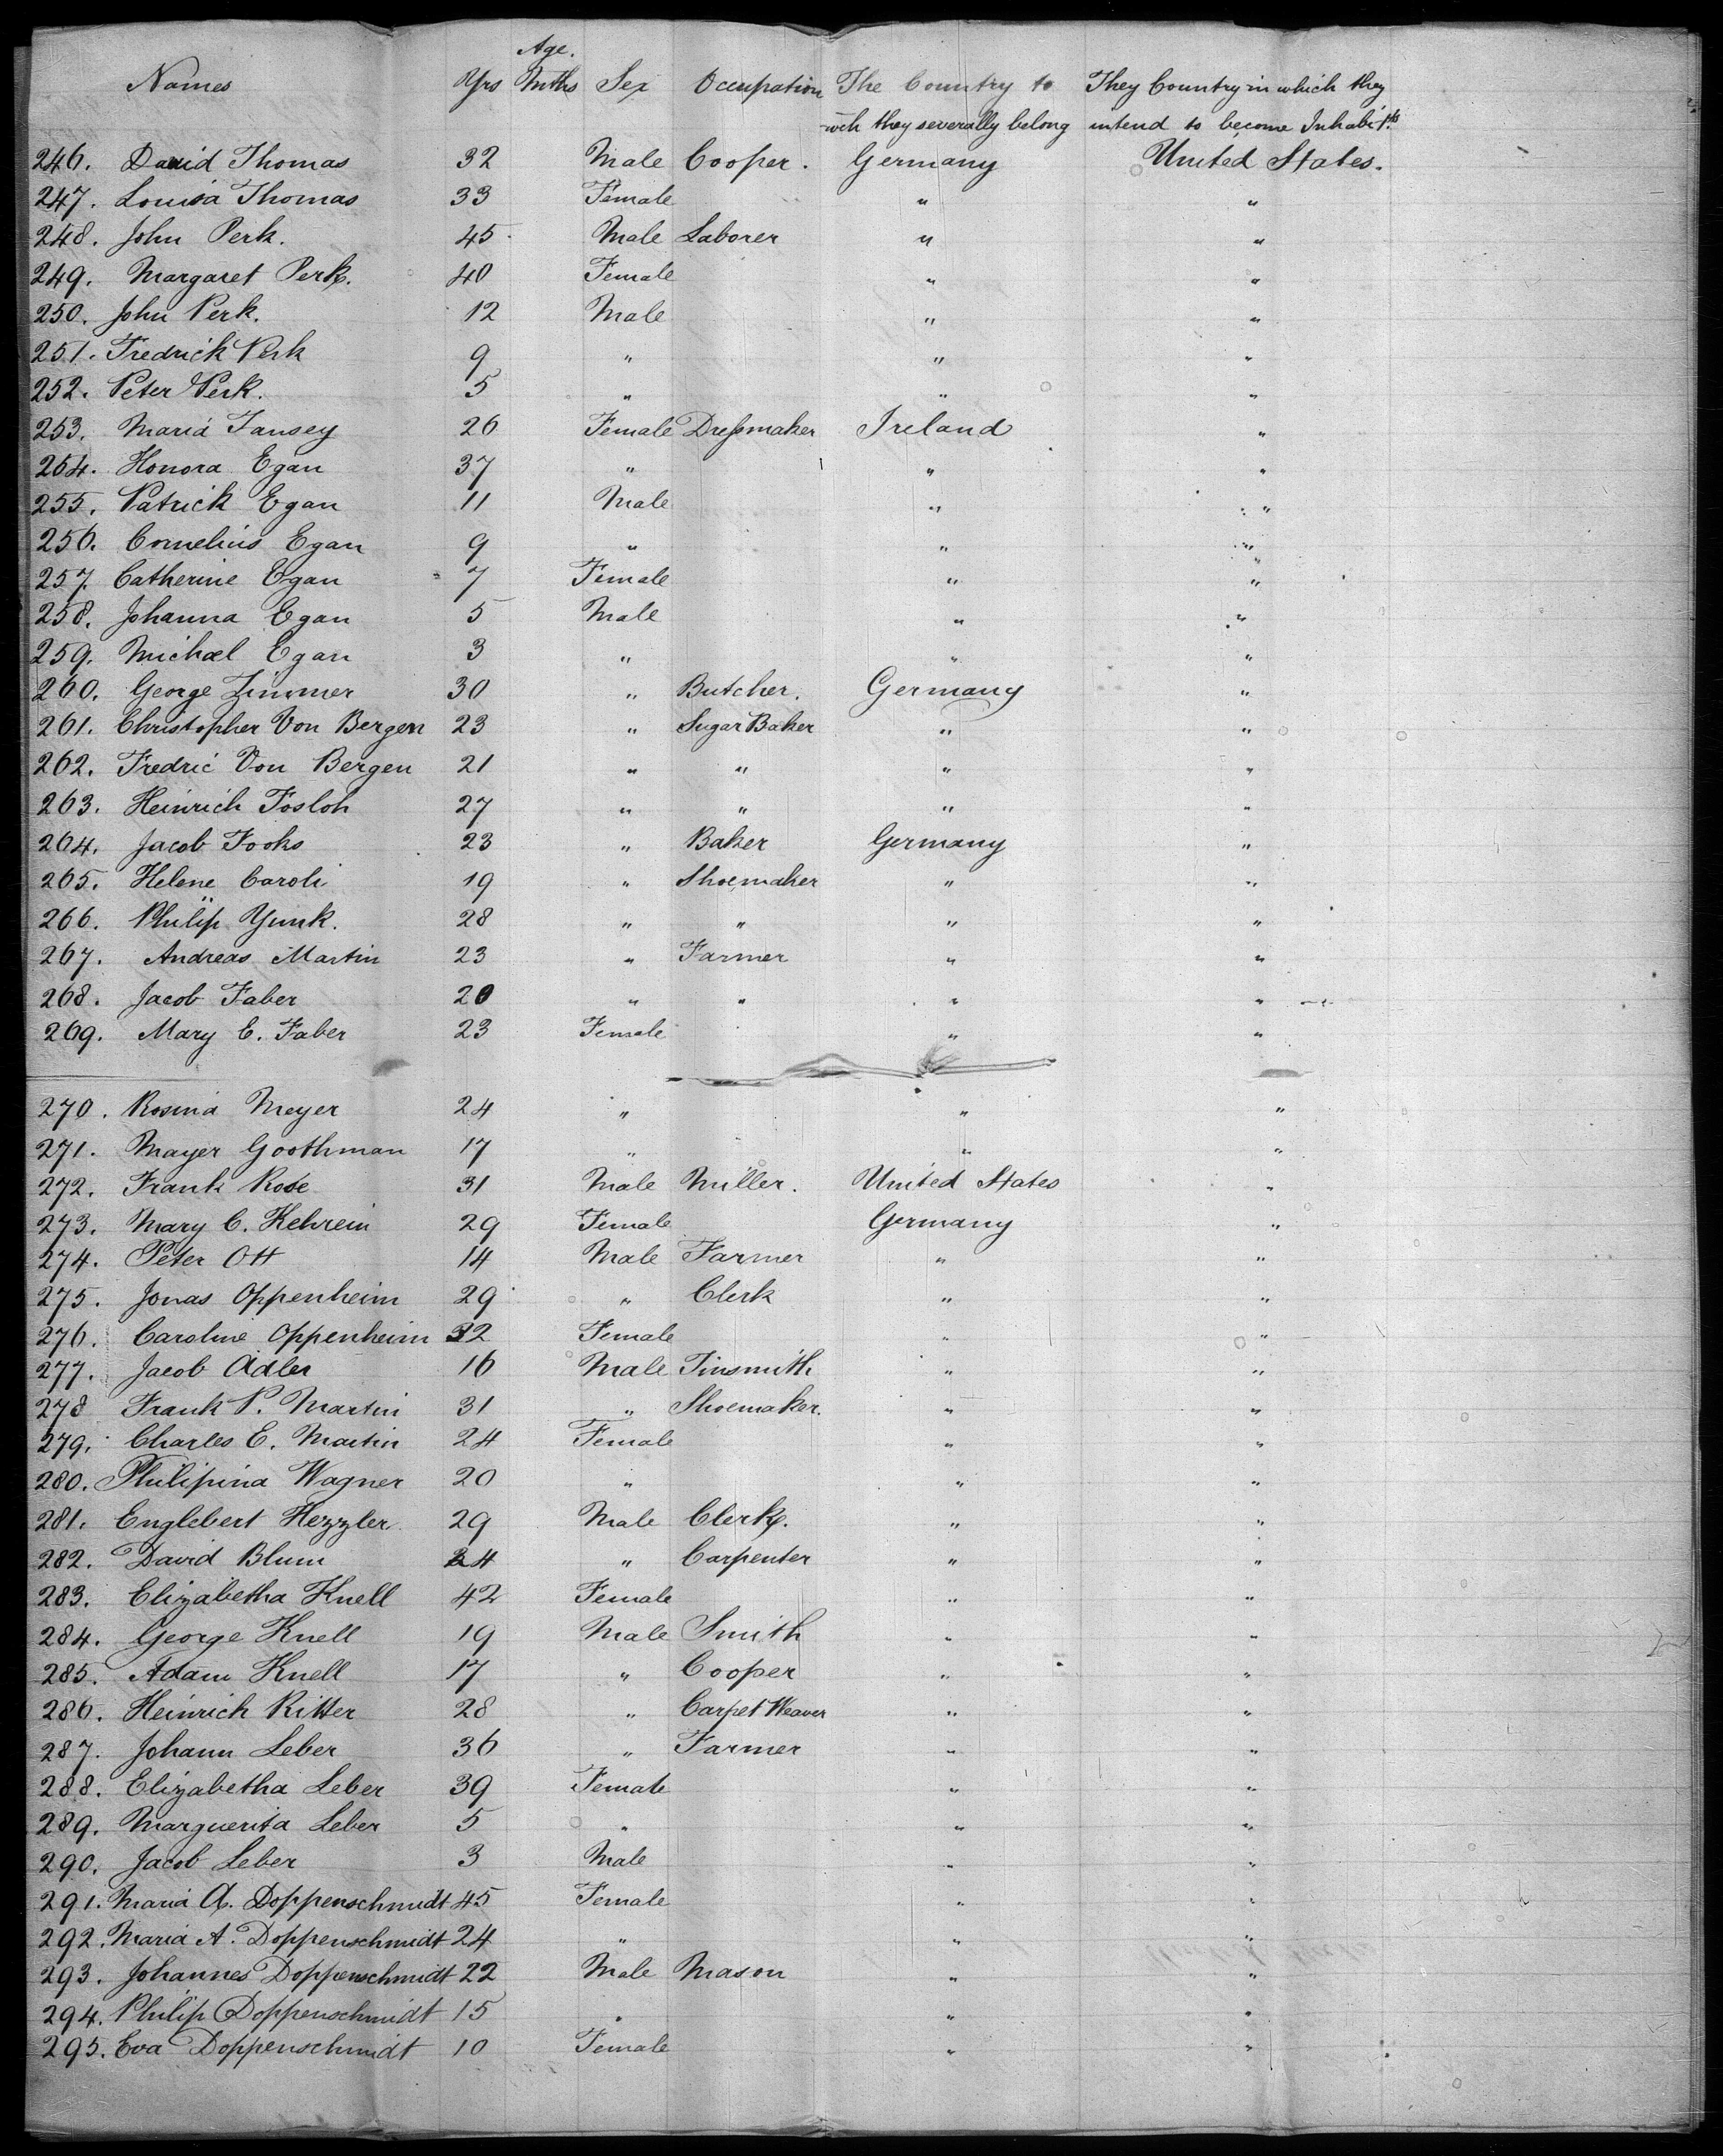 Age.
Names Yrs Mnths Sex Occupation The Country to They Country in which they
wch they severally belong intend to become Inhabit.ts
246. David Thomas 32 Male Cooper. Germany United States.
247. Louisa Thomas 33 Female " "
248. John Perk. 45 Male Laborer " "
249. Margaret Perk. 40 Female " "
250. John Perk. 12 Male " "
251. Fredrick Perk 9 " " "
252. Peter Perk. 5 " " "
253. Maria Tansey 26 Female Dressmaker Ireland "
254. Honora Egan 37 " " "
255. Patrick Egan 11 Male " "
256. Cornelius Egan 9 " " "
257. Catherine Egan 7 Female " "
258. Johanna Egan 5 Male " "
259. Michael Egan 3 " " "
260. George Zimmer 30 " Butcher. Germany "
261. Christopher Von Bergen 23 " Sugar Baker " "
262. Fredric Von Bergen 21 " " " "
263. Heinrich Fosloh 27 " " " "
264. Jacob Fooks 23 " Baker Germany "
265. Helene Caroli 19 " Shoemaker " "
266. Philip Yunk. 28 " " " "
267. Andreas Martin 23 " Farmer " "
268. Jacob Faber 20 " " " "
269. Mary C. Faber 23 Female " "
270. Rosina Meyer 24 " " "
271. Mayer Goothman 17 " " "
272. Frank Rose 31 Male Miller. United States "
273. Mary C. Kehrein 29 Female Germany "
274. Peter Ott 14 Male Farmer " "
275. Jonas Oppenheim 29 " Clerk " "
276. Caroline Oppenheim 32 Female " "
277. Jacob Adler 16 Male Tinsmith " "
278 Frank P. Martin 31 " Shoemaker. " "
279. Charles E. Martin 24 Female " "
280. Philipina Wagner 20 " " "
281. Englebert Hezzler 29 Male Clerk. " "
282. David Blum 24 " Carpenter " "
283. Elizabetha Knell 42 Female " "
284. George Knell 19 Male Smith " "
285. Adam Knell 17 " Cooper " "
286. Heinrich Ritter 28 " Carpet Weaver " "
287. Johann Leber 36 " Farmer " "
288. Elizabetha Leber 39 Female " "
289. Marguerita Leber 5 " " "
290. Jacob Leber 3 Male " "
291. Maria A. Doppenschmidt 45 Female " "
292. Maria A. Doppenschmidt 24 " " "
293. Johannes Doppenschmidt 22 Male Mason " "
294. Philip Doppenschmidt 15 " " "
295. Eva Doppenschmidt 10 Female " "